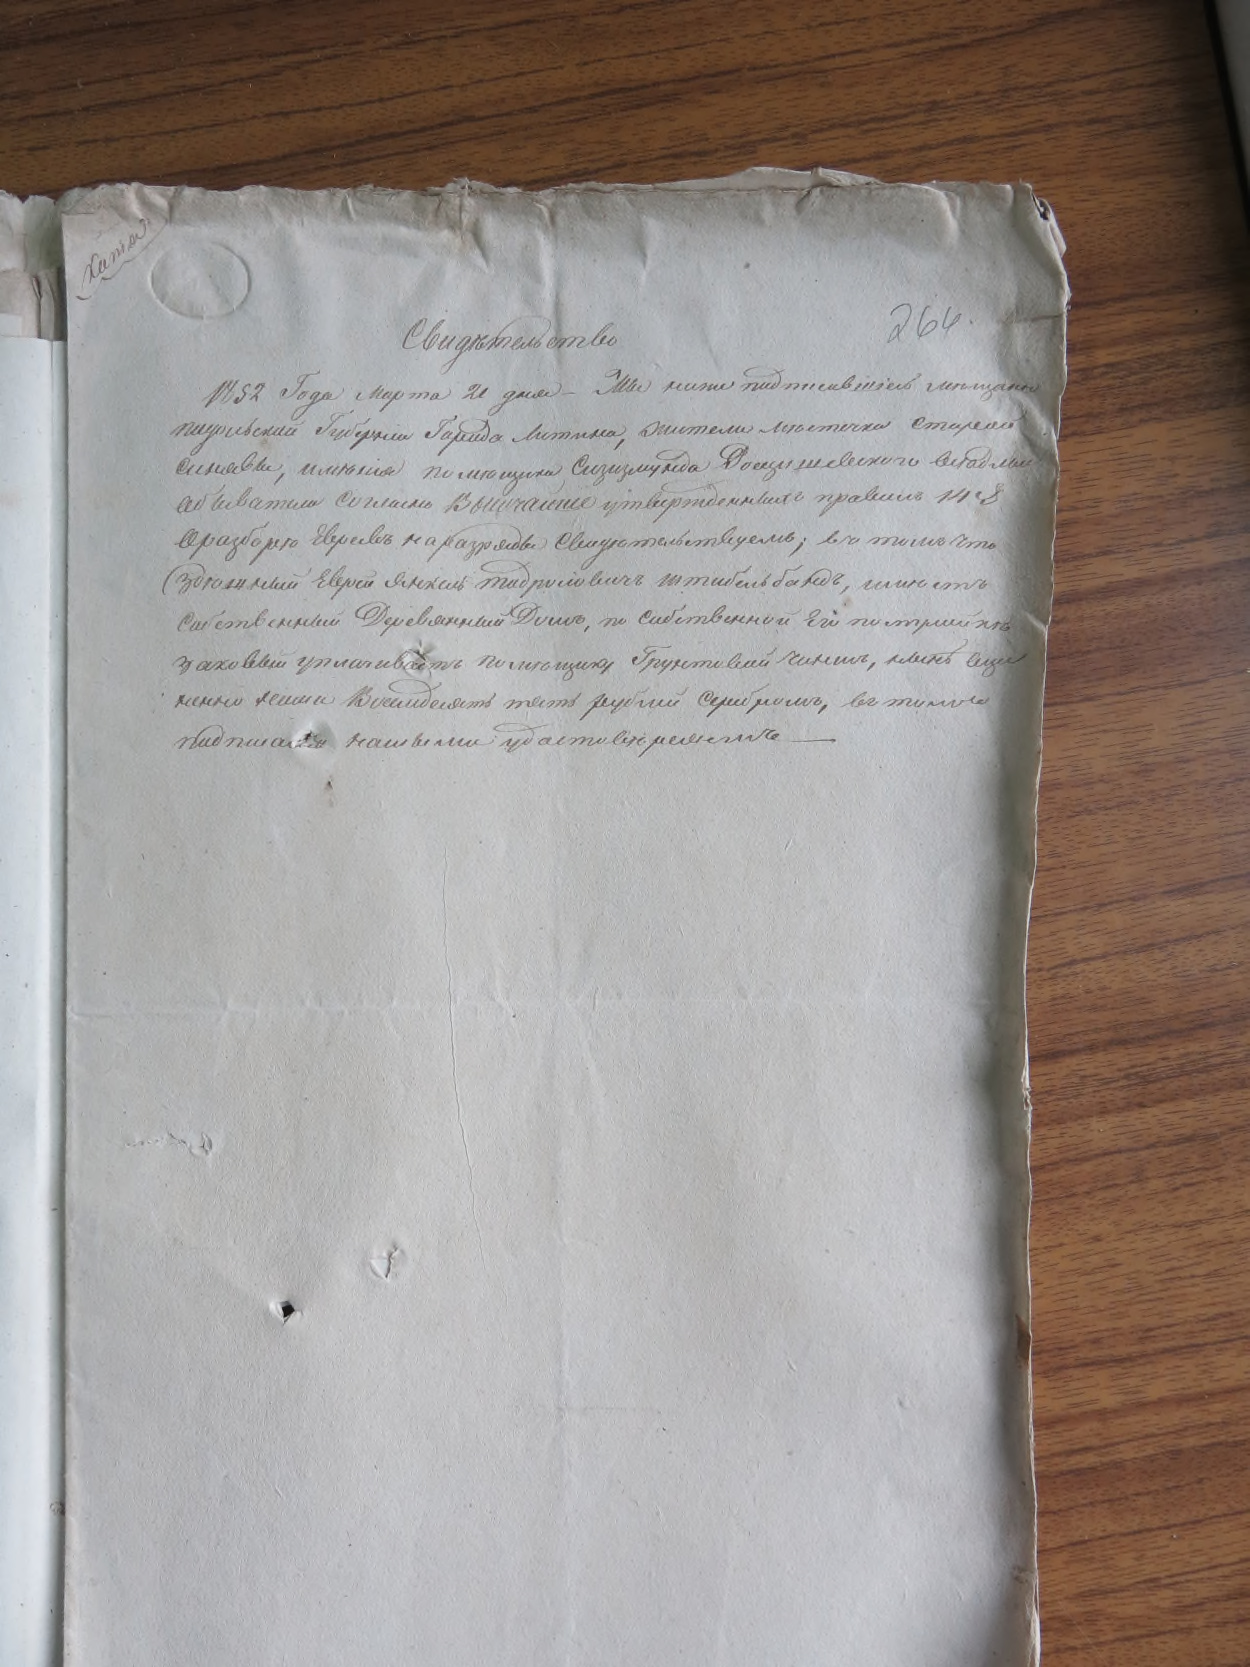 264.
Свидѣтельство
1852 Года Марта 21 дня – Мы ниже подписавшіеся мѣщане
подольской Губерніи Города Литина, жители мѣстечка Старой
Синявы, имѣнія помѣщика Сигизмунда
Обыватели Согласно Высочайше утвержденныхъ правилъ
О разборѣ Евреевъ на разряды Свидѣтельствуемъ; въ томъ что
здѣшный Еврей Янкель штибельбандъ, имѣетъ
Собственный Деревянный Домъ, по Собственной Его постройкѣ
за ковый уплачиваетъ помѣщику Грунтовый чиншъ,
нами Восемдесятъ пять рублей Серебромъ, въ томъ и
подписами нашыми удостовѣряемъ —